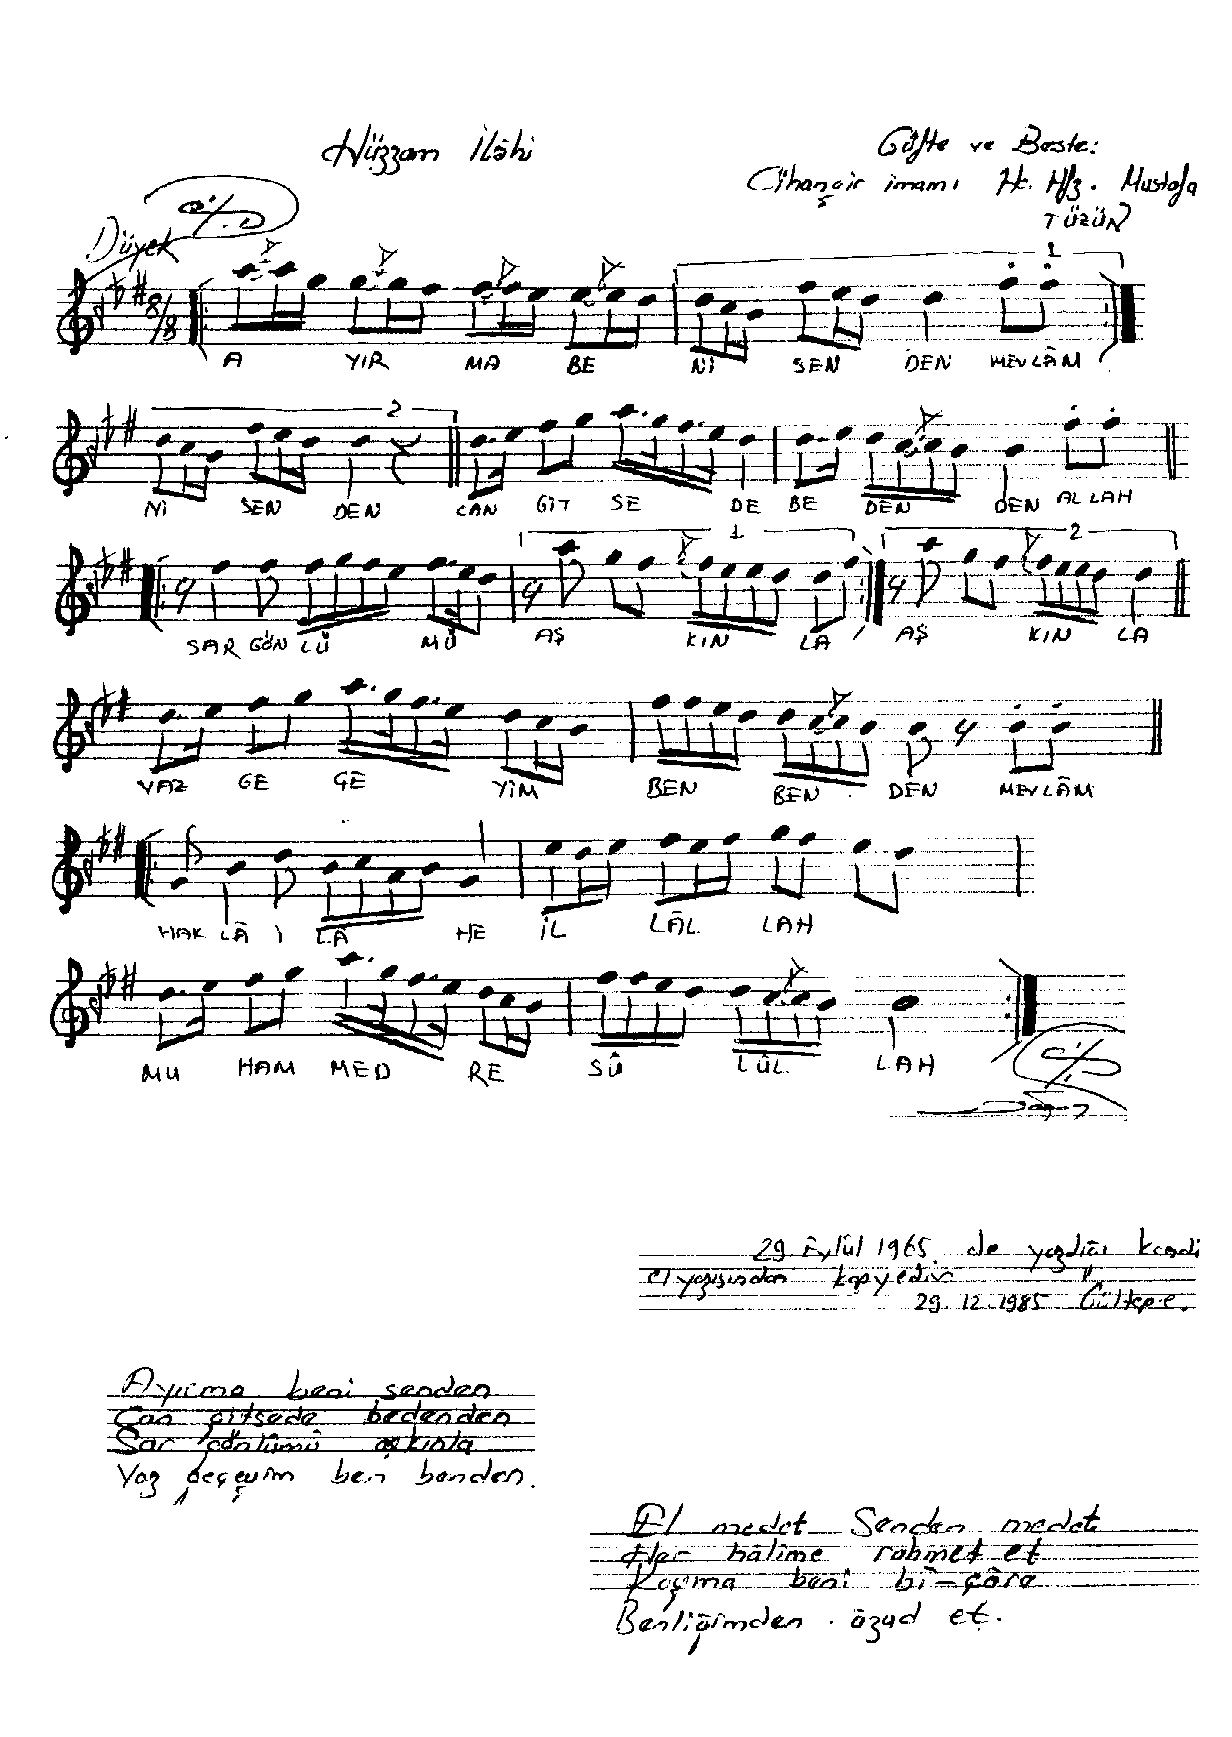 Hüzzam İlâhi
Güfte ve Beste:
Cihangir imamı Hz. Hfz. Mustafa
TÜZÜN
Düyek
8/8
1
A YIR MA BE Nİ SEN DEN MEVLÂM
2
Nİ SEN DEN CAN GİT SE DE BE DEN DEN ALLAH
1 2
SAR GÖN LÜ MÜ AŞ KIN LA AŞ KIN LA
VAZ GE GE YİM BEN BEN DEN MEVLÂM
HAK LÂ İ LÂ HE İL LÂL LAH
MU HAM MED RE SÛ LÛL LAH
29. Eylül 1965. de yazdığı kendi
el yazısından kopyedir
29.12.1985 Gültepe.
Ayırma beni senden
Can gitsede bedenden
Sar gönlümü aşkınla
Vaz geçeyim ben benden.
El medet Senden medet
Her hâlime rahmet et
Koyma beni bî-çâre
Benliğimden âzad et.